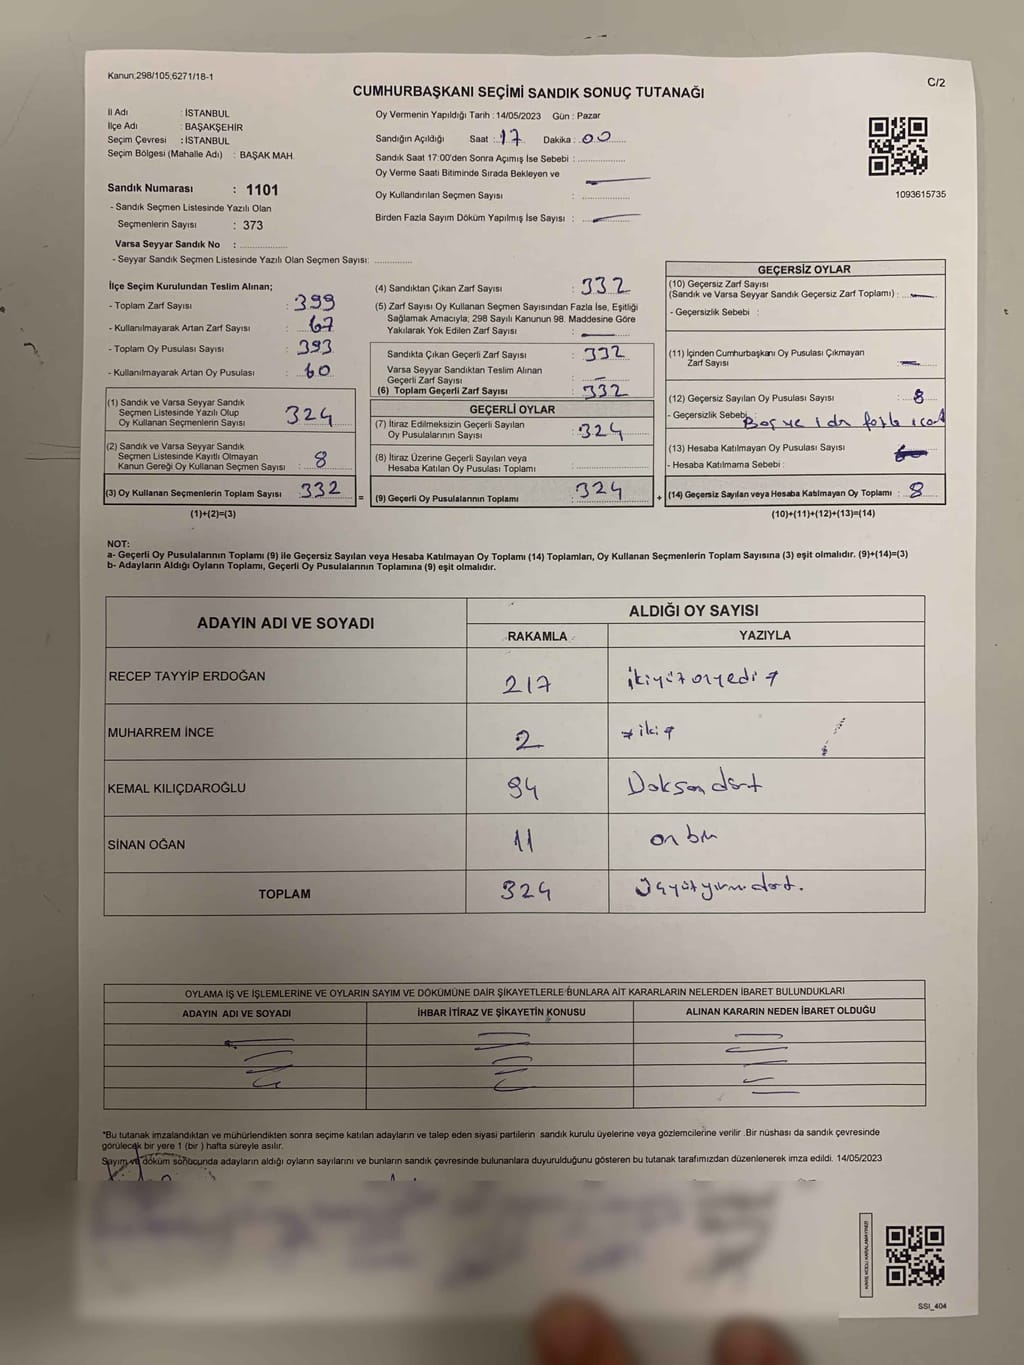 Kanun,298/105,6271/18-1
C/2
CUMHURBAŞKANI SEÇİMİ SANDIK SONUÇ TUTANAĞI
İl Adı : İSTANBUL
İlçe Adı : BAŞAKŞEHİR
Seçim Çevresi : İSTANBUL
Seçim Bölgesi (Mahalle Adı) : BAŞAK MAH.
Sandık Numarası : 1101
- Sandık Seçmen Listesinde Yazılı Olan
Seçmenlerin Sayısı : 373
Varsa Seyyar Sandık No :
- Seyyar Sandık Seçmen Listesinde Yazılı Olan Seçmen Sayısı:
Oy Vermenin Yapıldığı Tarih : 14/05/2023 Gün : Pazar
Sandığın Açıldığı Saat : 17 Dakika : 00
Sandık Saat 17:00'den Sonra Açımış İse Sebebi :
Oy Verme Saati Bitiminde Sırada Bekleyen ve
Oy Kullandırılan Seçmen Sayısı :
Birden Fazla Sayım Döküm Yapılmış İse Sayısı :
1093615735
İlçe Seçim Kurulundan Teslim Alınan;
- Toplam Zarf Sayısı : 399
- Kullanılmayarak Artan Zarf Sayısı : 67
- Toplam Oy Pusulası Sayısı : 393
- Kullanılmayarak Artan Oy Pusulası : 60
(1) Sandık ve Varsa Seyyar Sandık
Seçmen Listesinde Yazılı Olup
Oy Kullanan Seçmenlerin Sayısı : 324
(2) Sandık ve Varsa Seyyar Sandık
Seçmen Listesinde Kayıtlı Olmayan
Kanun Gereği Oy Kullanan Seçmen Sayısı : 8
(3) Oy Kullanan Seçmenlerin Toplam Sayısı : 332
(1)+(2)=(3)
=
(4) Sandıktan Çıkan Zarf Sayısı : 332
(5) Zarf Sayısı Oy Kullanan Seçmen Sayısından Fazla İse, Eşitliği
Sağlamak Amacıyla, 298 Sayılı Kanunun 98. Maddesine Göre
Yakılarak Yok Edilen Zarf Sayısı :
Sandıkta Çıkan Geçerli Zarf Sayısı : 332
Varsa Seyyar Sandıktan Teslim Alınan
Geçerli Zarf Sayısı :
(6) Toplam Geçerli Zarf Sayısı : 332
GEÇERLİ OYLAR
(7) İtiraz Edilmeksizin Geçerli Sayılan
Oy Pusulalarının Sayısı : 324
(8) İtiraz Üzerine Geçerli Sayılan veya
Hesaba Katılan Oy Pusulası Toplamı :
(9) Geçerli Oy Pusulalarının Toplamı : 324
+
GEÇERSİZ OYLAR
(10) Geçersiz Zarf Sayısı
(Sandık ve Varsa Seyyar Sandık Geçersiz Zarf Toplamı) :
- Geçersizlik Sebebi :
(11) İçinden Cumhurbaşkanı Oy Pusulası Çıkmayan
Zarf Sayısı :
(12) Geçersiz Sayılan Oy Pusulası Sayısı : 8
- Geçersizlik Sebebi : Boş ve 1 den fazla
(13) Hesaba Katılmayan Oy Pusulası Sayısı
- Hesaba Katılmama Sebebi :
(14) Geçersiz Sayılan veya Hesaba Katılmayan Oy Toplamı : 8
(10)+(11)+(12)+(13)=(14)
NOT:
a- Geçerli Oy Pusulalarının Toplamı (9) ile Geçersiz Sayılan veya Hesaba Katılmayan Oy Toplamı (14) Toplamları, Oy Kullanan Seçmenlerin Toplam Sayısına (3) eşit olmalıdır. (9)+(14)=(3)
b- Adayların Aldığı Oyların Toplamı, Geçerli Oy Pusulalarının Toplamına (9) eşit olmalıdır.
ADAYIN ADI VE SOYADI
ALDIĞI OY SAYISI
RAKAMLA YAZIYLA
RECEP TAYYİP ERDOĞAN 217 ikiyüzonyedi
MUHARREM İNCE 2 iki
KEMAL KILIÇDAROĞLU 94 Doksan dört
SİNAN OĞAN 11 on bir
TOPLAM 324 üçyüzyirmidört.
OYLAMA İŞ VE İŞLEMLERİNE VE OYLARIN SAYIM VE DÖKÜMÜNE DAİR ŞİKAYETLERLE BUNLARA AİT KARARLARIN NELERDEN İBARET BULUNDUKLARI
ADAYIN ADI VE SOYADI İHBAR İTİRAZ VE ŞİKAYETİN KONUSU ALINAN KARARIN NEDEN İBARET OLDUĞU
*Bu tutanak imzalandıktan ve mühürlendikten sonra seçime katılan adayların ve talep eden siyasi partilerin sandık kurulu üyelerine veya gözlemcilerine verilir .Bir nüshası da sandık çevresinde
görülecek bir yere 1 (bir ) hafta süreyle asılır.
Sayım ve döküm sonucunda adayların aldığı oyların sayılarını ve bunların sandık çevresinde bulunanlara duyurulduğunu gösteren bu tutanak tarafımızdan düzenlenerek imza edildi. 14/05/2023
SSI_404